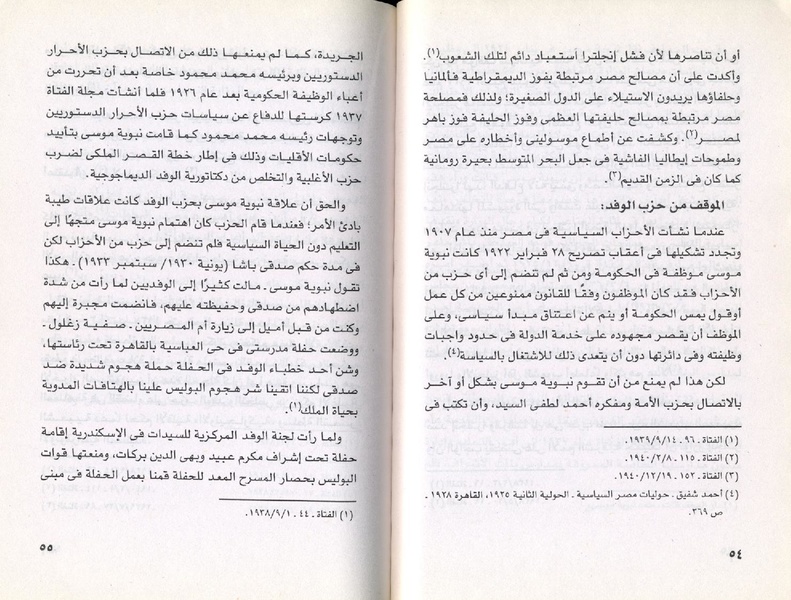 أو أن تناصرها لأن فشل إنجلترا استعباد دائم لتلك الشعوب(١).
وأكدت على أن مصالح مصر مرتبطة بفوز الديمقراطية فألمانيا
وحلفاؤها يريدون الاستيلاء على الدول الصغيرة؛ ولذلك فمصلحة
مصر مرتبطة بمصالح حليفتها العظمى وفوز الحليفة فوز باهر
لمصـر(٢). وكشفت عن أطماع موسولينى وأخطاره على مصر
وطموحات إيطاليا الفاشية فى جعل البحر المتوسط بحيرة رومانية
كما كان فى الزمن القديم(٣).
الموقف من حزب الوفد:
عندما نشأت الأحزاب السياسية فى مصر منذ عام ١٩٠٧
وتجدد تشكيلها فى أعقاب تصريح ٢٨ فبراير ١٩٢٢ كانت نبوية
موسى موظفة فى الحكومة ومن ثم لم تنضم إلى أى حزب من
الأحزاب فقد كان الموظفون وفقًا للقانون ممنوعين من كل عمل
أوقول يمس الحكومة أو ينم عن اعتناق مبدأ سياسى، وعلى
الموظف أن يقصر مجهوده على خدمة الدولة فى حدود واجبات
وظيفته وفى دائرتها دون أن يتعدى ذلك للاشتغال بالسياسة(٤).
لكن هذا لم يمنع من أن تقوم نبوية موسى بشكل أو آخر
بالاتصال بحزب الأمة ومفكره أحمد لطفى السيد، وأن تكتب فى
(١) الفتاة ـ ٩٦ ـ ١٩٣٩/٩/١٤.
(٢) الفتاة ـ ١١٥ ـ ١٩٤٠/٢/٨.
(٣) الفتاة ـ ١٥٢ ـ ١٩٤٠/١٢/١٩.
(٤) أحمد شفيق ـ حوليات مصر السياسية ـ الحولية الثانية ١٩٢٥، القاهرة ١٩٢٨ ـ
ص ٣٦٩.
٥٤
الجريدة، كما لم يمنعها ذلك من الاتصال بحزب الأحرار
الدستوريين وبرئيسه محمد محمود خاصة بعد أن تحررت من
أعباء الوظيفة الحكومية بعد عام ١٩٢٦ فلما أنشأت مجلة الفتاة
١٩٣٧ كرستها للدفاع عن سياسات حزب الأحرار الدستوريين
وتوجهات رئيسه محمد محمود كما قامت نبوية موسى بتأييد
حكومات الأقليات وذلك فى إطار خطة القصر الملكى لضرب
حزب الأغلبية والتخلص من دكتاتورية الوفد الديماجوجية.
والحق أن علاقة نبوية موسى بحزب الوفد كانت علاقات طيبة
بادئ الأمر؛ فعندما قام الحزب كان اهتمام نبوية موسى متجهًا إلى
التعليم دون الحياة السياسية فلم تنضم إلى حزب من الأحزاب لكن
فى مدة حكم صدقى باشا (يونية ١٩٣٠/ سبتمبر ١٩٣٣) ـ هكذا
تقول نبوية موسى ـ مالت كثيرًا إلى الوفديين لما رأت من شدة
اضطهادهم من صدقى وحفيظته عليهم، فانضمت مجبرة إليهم
وكنت من قبل أميل إلى زيارة أم المصريين ـ صفية زغلول ـ
ووضعت حفلة مدرستى فى حى العباسية بالقاهرة تحت رئاستها،
وشن أحد خطباء الوفد فى الحفلة حملة هجوم شديدة ضد
صدقى لكننا اتقينا شر هجوم البوليس علينا بالهتافات المدوية
بحياة الملك(١).
ولما رأت لجنة الوفد المركزية للسيدات فى الإسكندرية إقامة
حفلة تحت إشراف مكرم عبيد وبهى الدين بركات، ومنعتها قوات
البوليس بحصار المسرح المعد للحفلة قمنا بعمل الحفلة فى مبنى
(١) الفتاة ـ ٤٤ ـ ١٩٣٨/٩/١.
٥٥